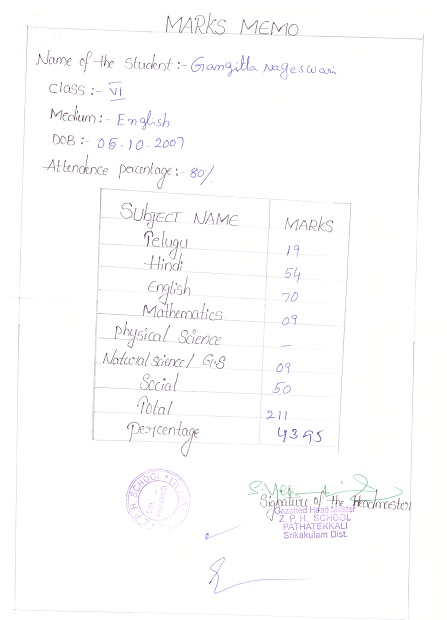 MARKS MEMO
Name of the Student :- Gangitla Nageswari
Class :- VI
Medium :- English
DOB :- 05.10.2007
Attendence percentage :- 80%
SUBJECT NAME MARKS
Telugu 19
Hindi 54
English 70
Mathematics 09
physical Science –
Natural science / G.S 09
Social 50
Total 211
Percentage 43.95
Signature of the Headmaster
Gazetted Head Master
Z. P. H. SCHOOL
PATHATEKKALI
Srikakulam Dist.
Z.P.H. SCHOOL